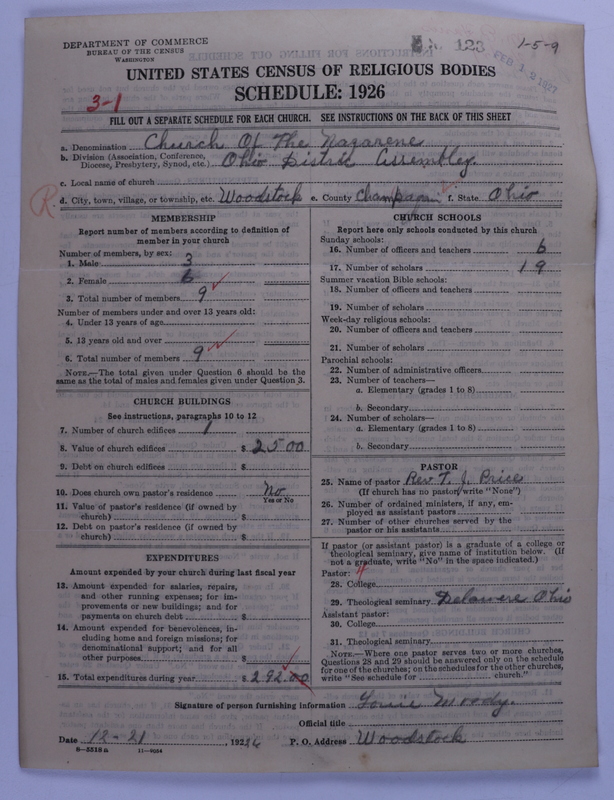 DEPARTMENT OF COMMERCE
BUREAU OF THE CENSUS
WASHINGTON
123
1-5-9
FEB 19 1927
UNITED STATES CENSUS OF RELIGIOUS BODIES
SCHEDULE: 1926
3-1
FILL OUT A SEPARATE SCHEDULE FOR EACH CHURCH. SEE INSTRUCTIONS ON THE BACK OF THIS SHEET
a. Denomination Church Of The Nazarene
b. Division (Association, Conference, Diocese, Presbytery, Synod, etc.) Ohio District Assembley.
c. Local name of church
R d. City, town, village, or township, etc. Woodstock e. County Champaign f. State Ohio
MEMBERSHIP
Report number of members according to definition of
member in your church
Number of members, by sex:
1. Male 3
2. Female 6
3. Total number of members 9
Number of members under and over 13 years old:
4. Under 13 years of age
5. 13 years old and over
6. Total number of members 9
NOTE.—The total given under Question 6 should be
same as the total of males and females given under Question 3.
CHURCH BUILDINGS
See instructions, paragraphs 10 to 12
7. Number of church edifices 1
8. Value of church edifices $ 2500
9. Debt on church edifices $
10. Does church own pastor's residence No
Yes or No
11. Value of pastor's residence (if owned by
church) $
12. Debt on pastor's residence (if owned by
church) $
EXPENDITURES
Amount expended by your church during last fiscal year
13. Amount expended for salaries, repairs,
and other running expenses; for im-
provements or new buildings; and for
payments on church debt $
14. Amount expended for benevolences, in-
cluding home and foreign missions; for
denominational support; and for all
other purposes $
15. Total expenditures during year $ 292.00
CHURCH SCHOOLS
Report here only schools conducted by this church
Sunday schools:
16. Number of officers and teachers 6
17. Number of scholars 19
Summer vacation Bible schools:
18. Number of officers and teachers
19. Number of scholars
Week-day religious schools:
20. Number of officers and teachers
21. Number of scholars
Parochial schools:
22. Number of administrative officers
23. Number of teachers—
a. Elementary (grades 1 to 8)
b. Secondary
24. Number of scholars—
a. Elementary (grades 1 to 8)
b. Secondary
PASTOR
25. Name of pastor Rev. T. J. Price
(If church has no pastor, write "None")
26. Number of ordained ministers, if any, em-
ployed as assistant pastors
27. Number of other churches served by the
pastor or his assistants
If pastor (or assistant pastor) is a graduate of a college or
theological seminary, give name of institution below. (If
not a graduate, write "No" in the space indicated.)
Pastor: 4
28. College
29. Theological seminary Delawere Ohio
Assistant pastor:
30. College
31. Theological seminary
NOTE.—Where one pastor serves two or more churches,
Questions 28 and 29 should be answered only on the schedule
for one of the churches; on the schedules for the other churches,
write "See schedule for church."
Signature of person furnishing information Moody.
Official title
Date 12-21, 1926 P. O. Address Woodstock
8—5518 a 11—9054